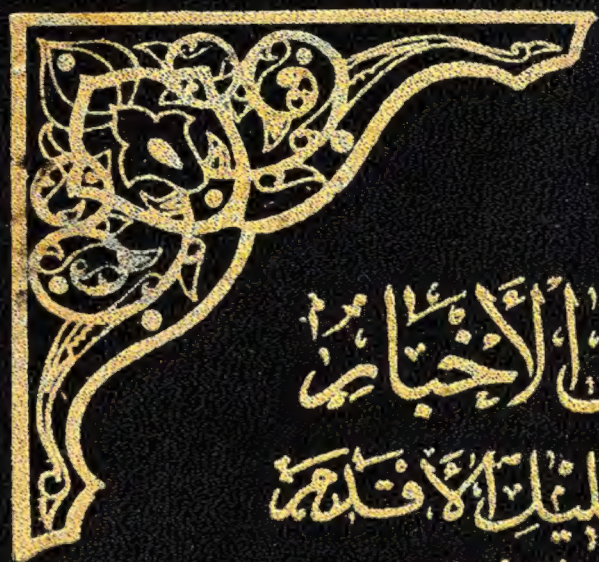 الأخبار
ليل الأقدم